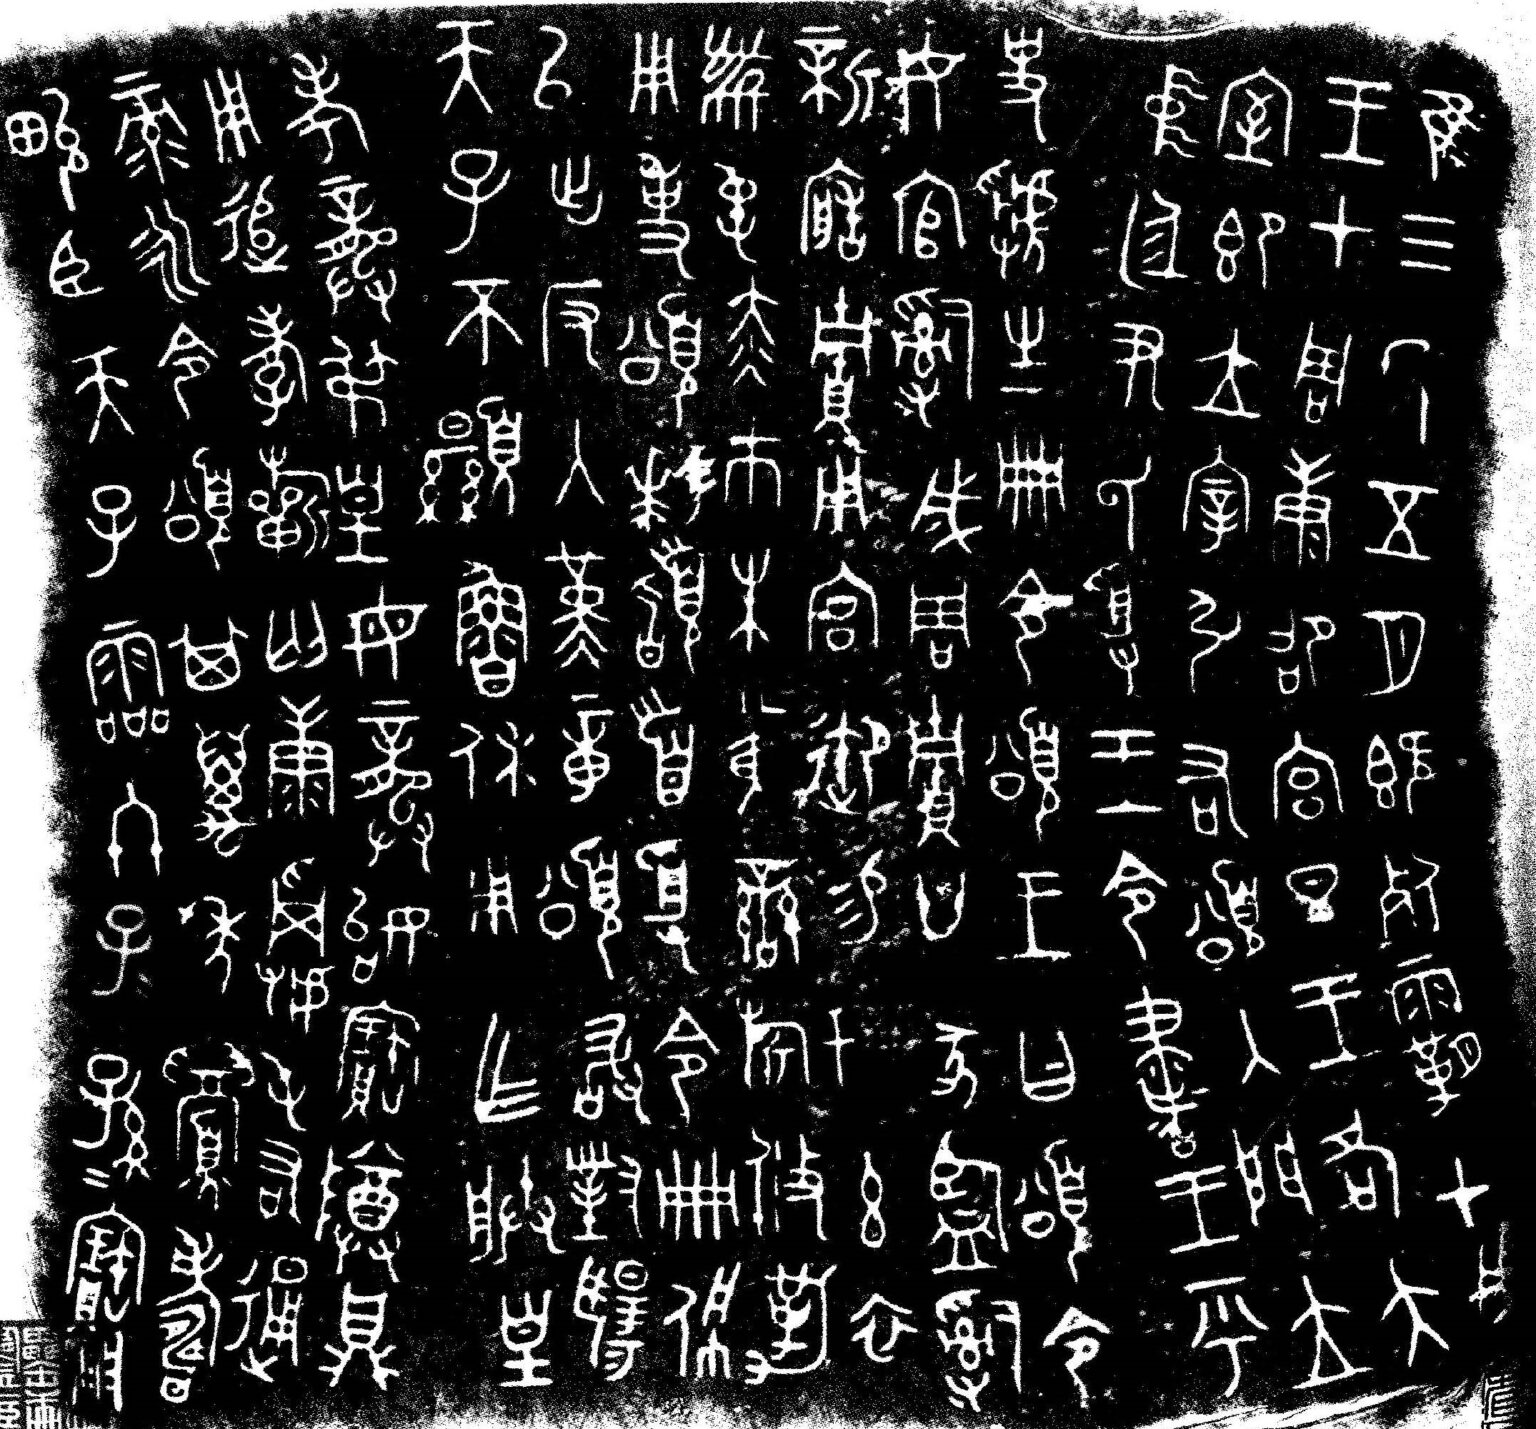 隹三年五月既死霸甲戌
王才周康卲宮旦王各大
室即立宰引右頌入門立
中廷尹氏受王令書王乎
史虢生冊令頌王曰頌令
女官𤔲成周貯廿家監𤔲
新造貯用宮御易女玄衣
黹屯赤巿朱黃䜌旂攸勒
用事頌拜𩒨首受令冊佩
以出反入堇章頌敢對揚
天子不顯魯休用乍朕皇
考龔弔皇母龔始寶尊鼎
用追孝𣄨匄康𩛥屯右通
彔永令頌其萬年眉壽
畯臣天子霝冬子孫=寶用